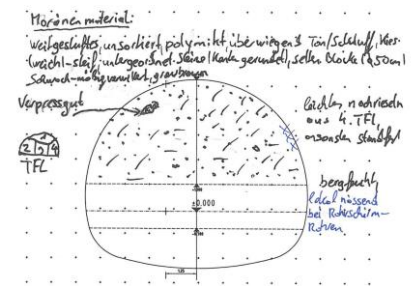 Moränenmaterial:
Weitgestuftes, unsortiert, polymikt, überwiegend Ton/Schluff, Kies
(weichl-steif, untergeordnet Steine (Kanten gerundet), selten Blöcke (≤50cm)
Schwach-mäßig verwittert, graubraun
Verpressgut
leichtes nachrieseln
aus 4. TFL,
ansonsten standfest
1
2 3 4
TFL
bergfeucht
lokal nässend
bei Rohrschirm-
Rohren
±0.000